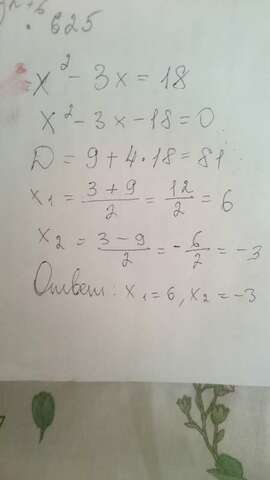 625
x² - 3x = 18
x² - 3x - 18 = 0
D = 9 + 4·18 = 81
x₁ = (3+9)/2 = 12/2 = 6
x₂ = (3-9)/2 = -6/2 = -3
Ответ: x₁ = 6, x₂ = -3